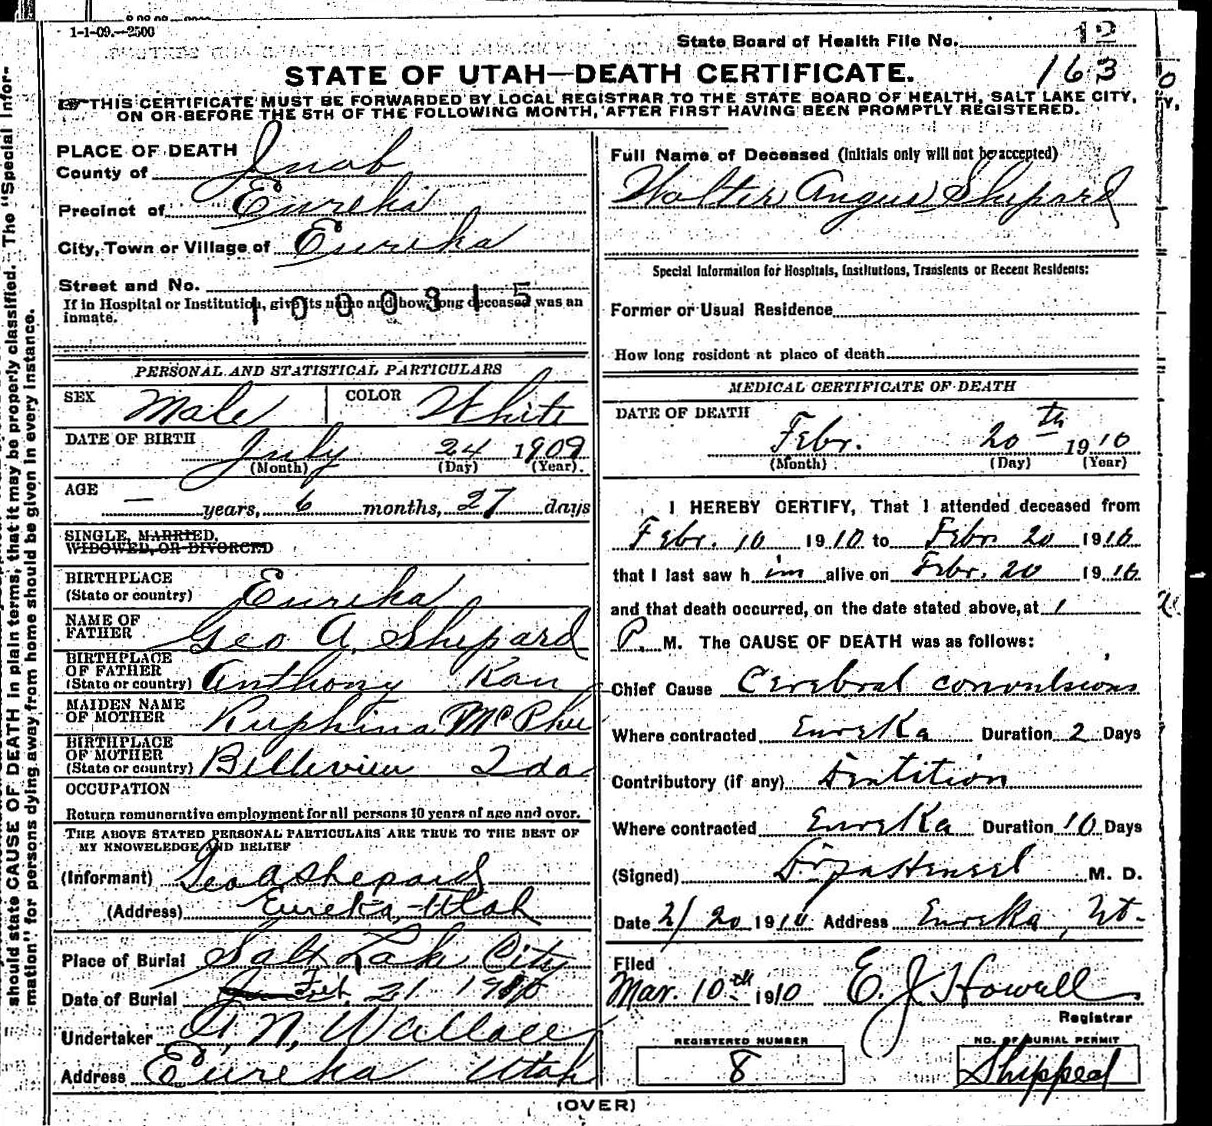 1-1-09.—2500
State Board of Health File No. 12
163
STATE OF UTAH—DEATH CERTIFICATE.
THIS CERTIFICATE MUST BE FORWARDED BY LOCAL REGISTRAR TO THE STATE BOARD OF HEALTH, SALT LAKE CITY,
ON OR BEFORE THE 5TH OF THE FOLLOWING MONTH, AFTER FIRST HAVING BEEN PROMPTLY REGISTERED.
should state CAUSE OF DEATH in plain terms, that it may be properly classified. The "Special Infor-
mation" for persons dying away from home should be given in every instance.
PLACE OF DEATH
County of Juab
Precinct of Eureka
City, Town or Village of Eureka
Street and No.
If in Hospital or Institution, give its name and how long deceased was an
inmate.
1000315
PERSONAL AND STATISTICAL PARTICULARS
SEX Male COLOR White
DATE OF BIRTH July 24 1909
(Month) (Day) (Year).
AGE — years, 6 months, 27 days
SINGLE, MARRIED,
WIDOWED, OR DIVORCED
BIRTHPLACE
(State or country) Eureka
NAME OF
FATHER Geo A. Shepard
BIRTHPLACE
OF FATHER
(State or country) Anthony Kan
MAIDEN NAME
OF MOTHER Ruphina McPhee
BIRTHPLACE
OF MOTHER
(State or country) Bellevieu Ida
OCCUPATION
Return remunerative employment for all persons 10 years of age and over.
THE ABOVE STATED PERSONAL PARTICULARS ARE TRUE TO THE BEST OF
MY KNOWELEDGE AND BELIEF
(Informant) Geo A Shepard
(Address) Eureka, Utah
Place of Burial Salt Lake City
Date of Burial Feb. 21 1910
Undertaker N. Wallace
Address Eureka Utah
Full Name of Deceased (Initials only will not be accepted)
Walter Angus Shepard
Special Information for Hospitals, Institutions, Transients or Recent Residents:
Former or Usual Residence
How long resident at place of death
MEDICAL CERTIFICATE OF DEATH
DATE OF DEATH
Febr. 20th 1910
(Month) (Day) (Year)
I HEREBY CERTIFY, That I attended deceased from
Febr. 10 1910 to Febr. 20 1910
that I last saw him alive on Febr. 20 1910
and that death occurred, on the date stated above, at 1
P. M. The CAUSE OF DEATH was as follows:
Chief Cause Cerebral convulsions
Where contracted Eureka Duration 2 Days
Contributory (if any) Dentition
Where contracted Eureka Duration 10 Days
(Signed) M. D.
Date 2/20 1910 Address Eureka, Ut.
Filed
Mar. 10th 1910 E. J. Howell
Registrar
REGISTERED NUMBER
8
NO. OF BURIAL PERMIT
Shipped
(OVER)